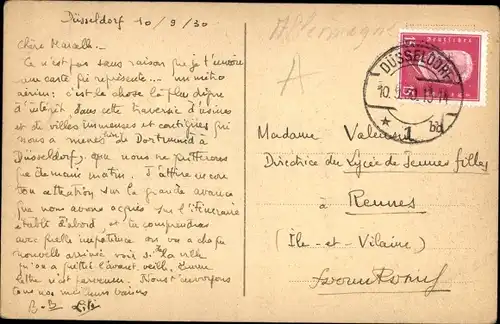 Düsseldorf 10/9/30
Chère Marcelle -
Ce n'est pas sans raison que je t'envoie
une carte qui représente... un métro
aérien: c'est la chose la plus digne
d'intérêt dans cette traversée d'usines
et de villes immenses et contigües qui
nous a menés de Dortmund à
Düsseldorf, que nous ne quitterons
que demain matin. J'attire
ton attention sur la grande avance
que nous avons sur l'itinéraire
établi d'abord, et tu comprendras
avec quelle impatience on va à chaque
nouvelle arrivée voir si la ville
qu'on a quittée l'avant veille,
lettre n'est parvenue. Nous t'envoyons
tous nos meilleurs baisers
Allemagne
A
Deutsches
15
15
DÜSSELDORF
10.9.30.13-14
* 1 bd
Madame
Directrice du Lycée de Jeunes filles
à
Rennes
(Ile-et-Vilaine)